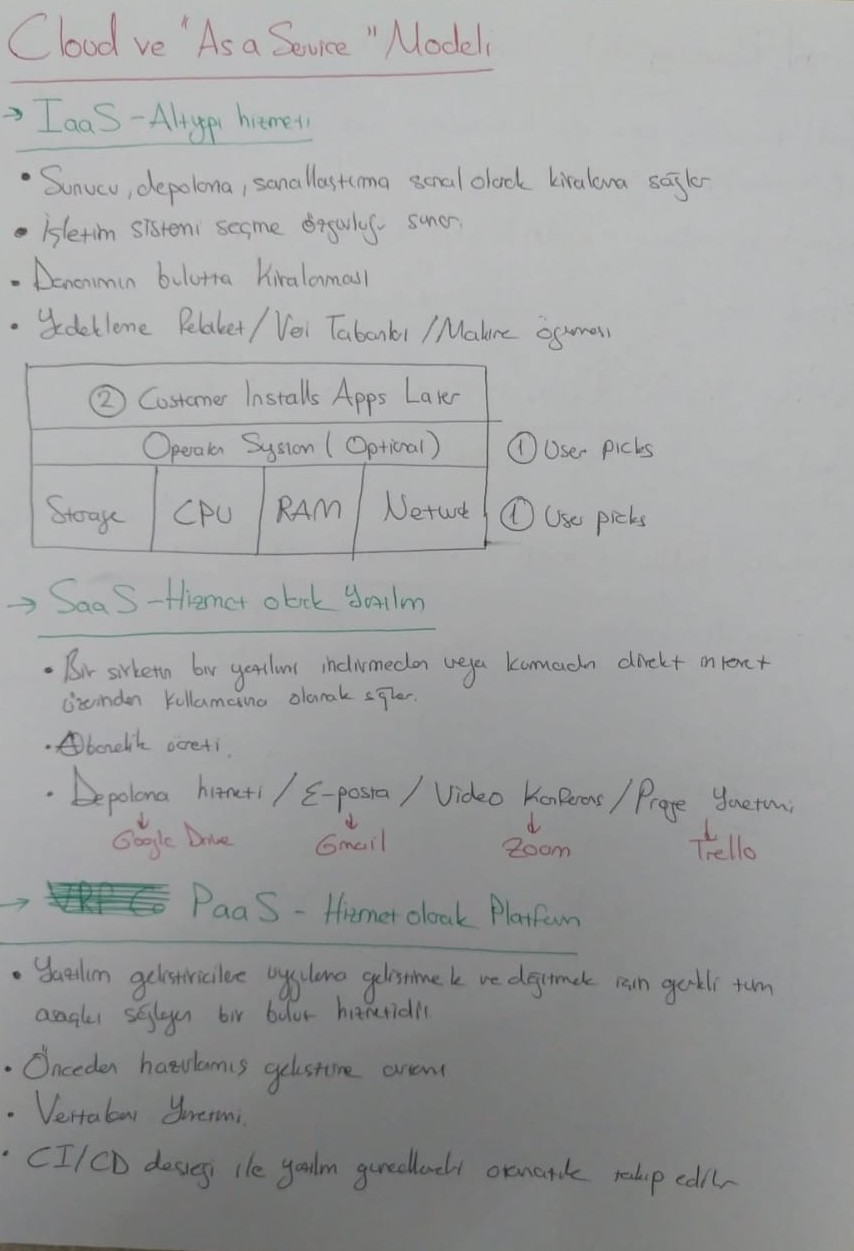 Cloud ve "As a Service" Modeli
→ IaaS - Altyapı hizmeti
• Sunucu, depolama, sanallaştırma sanal olarak kiralama sağlar
• İşletim sistemi seçme özgürlüğü sunar.
• Donanımın bulutta Kiralanması
• Yedekleme Felaket / Veri Tabanları / Makine öğrenmesi
② Customer Installs Apps Later
Operator System (Optional) ① User picks
Storage CPU RAM Network ① User picks
→ SaaS - Hizmet olarak Yazılım
• Bir şirketin bir yazılımı indirmeden veya kurmadan direkt internet
üzerinden kullanmasına olanak sağlar.
• Abonelik ücreti.
• Depolama hizmeti / E-posta / Video Konferans / Proje Yönetimi
Google Drive Gmail Zoom Trello
→ PaaS - Hizmet olarak Platform
• Yazılım geliştiricilere uygulama geliştirmek ve dağıtmak için gerekli tüm
araçları sağlayan bir bulut hizmetidir.
• Önceden hazırlanmış geliştirme ortamı
• Veritabanı Yönetimi.
• CI/CD desteği ile yazılım güncellemeleri otomatik takip edilir